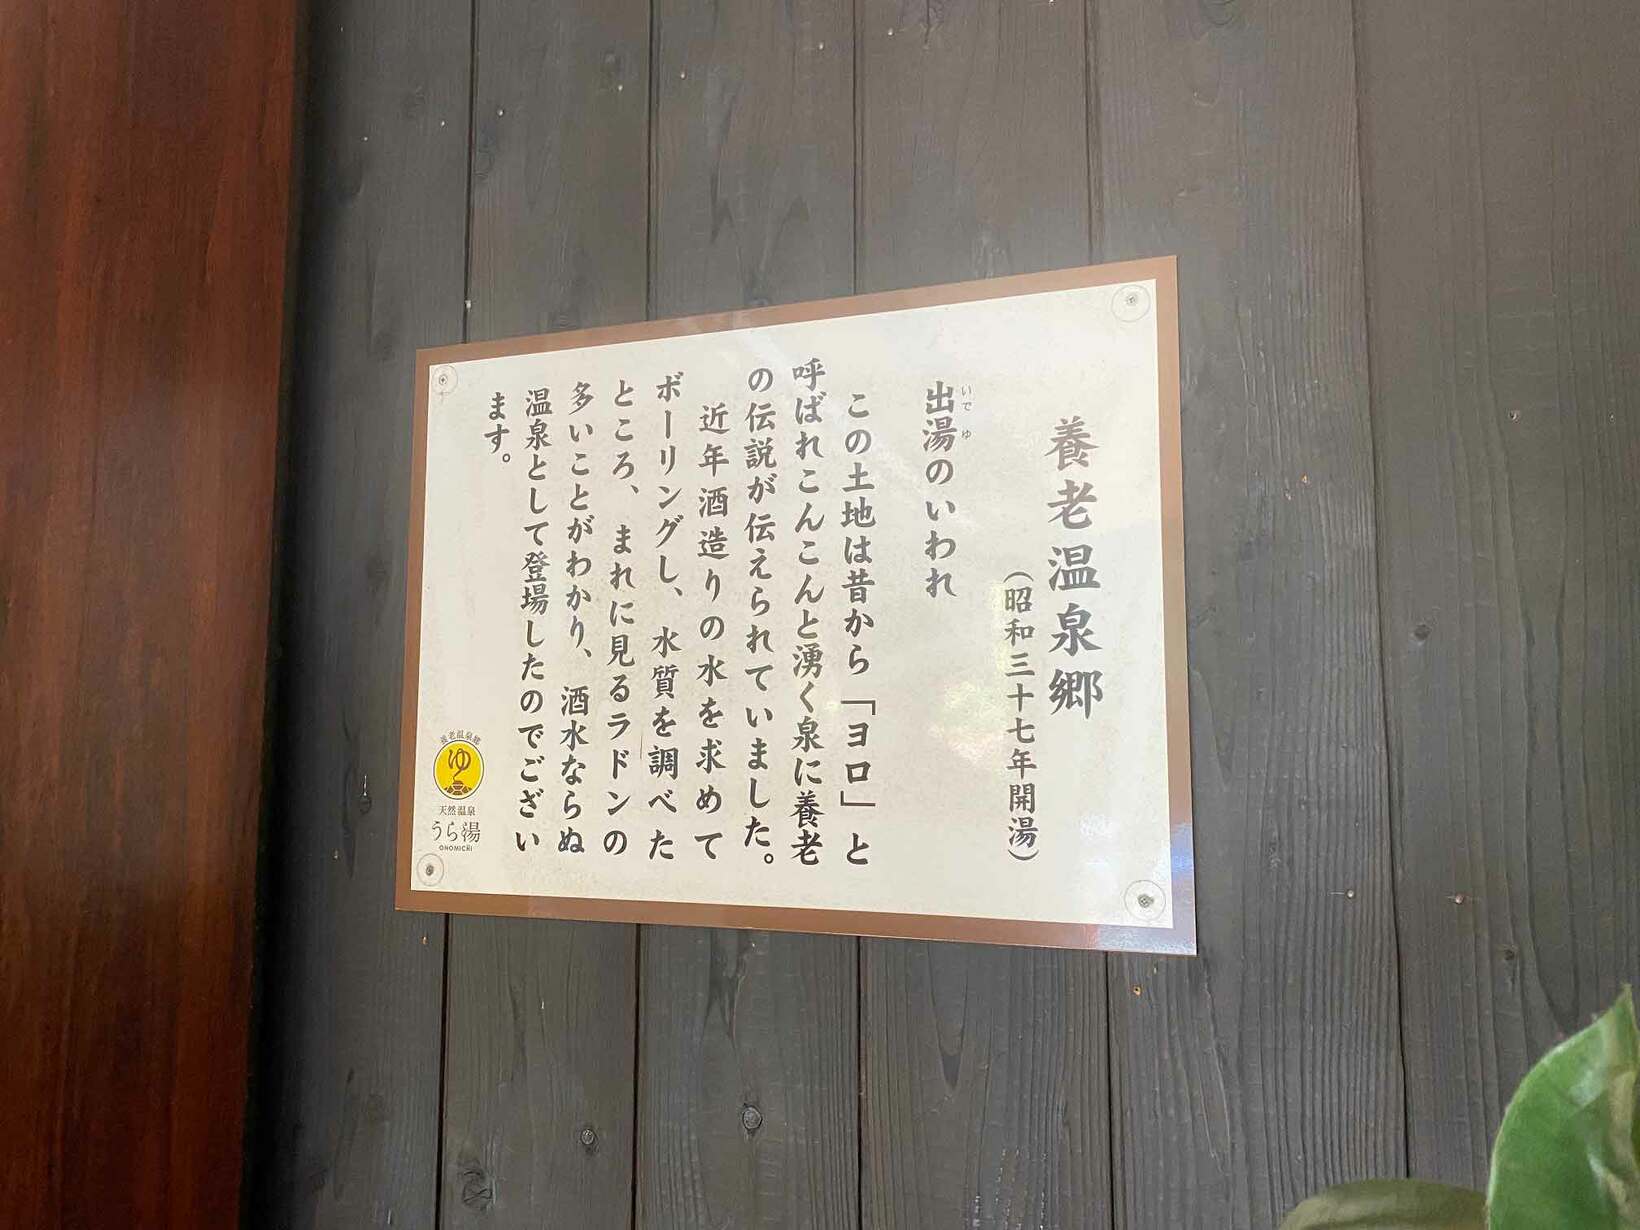 養老温泉郷
（昭和三十七年開湯）
いでゆ
出湯のいわれ
この土地は昔から「ヨロ」と
呼ばれこんこんと湧く泉に養老
の伝説が伝えられていました。
近年酒造りの水を求めて
ボーリングし、水質を調べた
ところ、まれに見るラドンの
多いことがわかり、酒水ならぬ
温泉として登場したのでござい
ます。
養老温泉郷
ゆ
天然温泉
うら湯
ONOMICHI